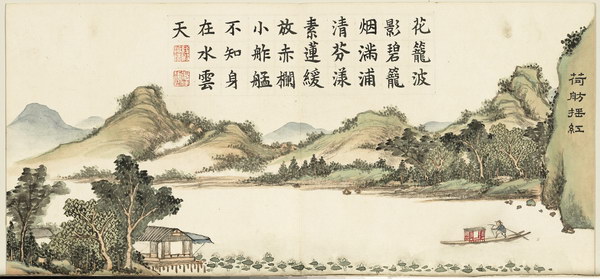 荷舫搖紅
花籠波
影碧籠
烟滿浦
清芬漾
素蓮緩
放赤欄
小舴艋
不知身
在水雲
天